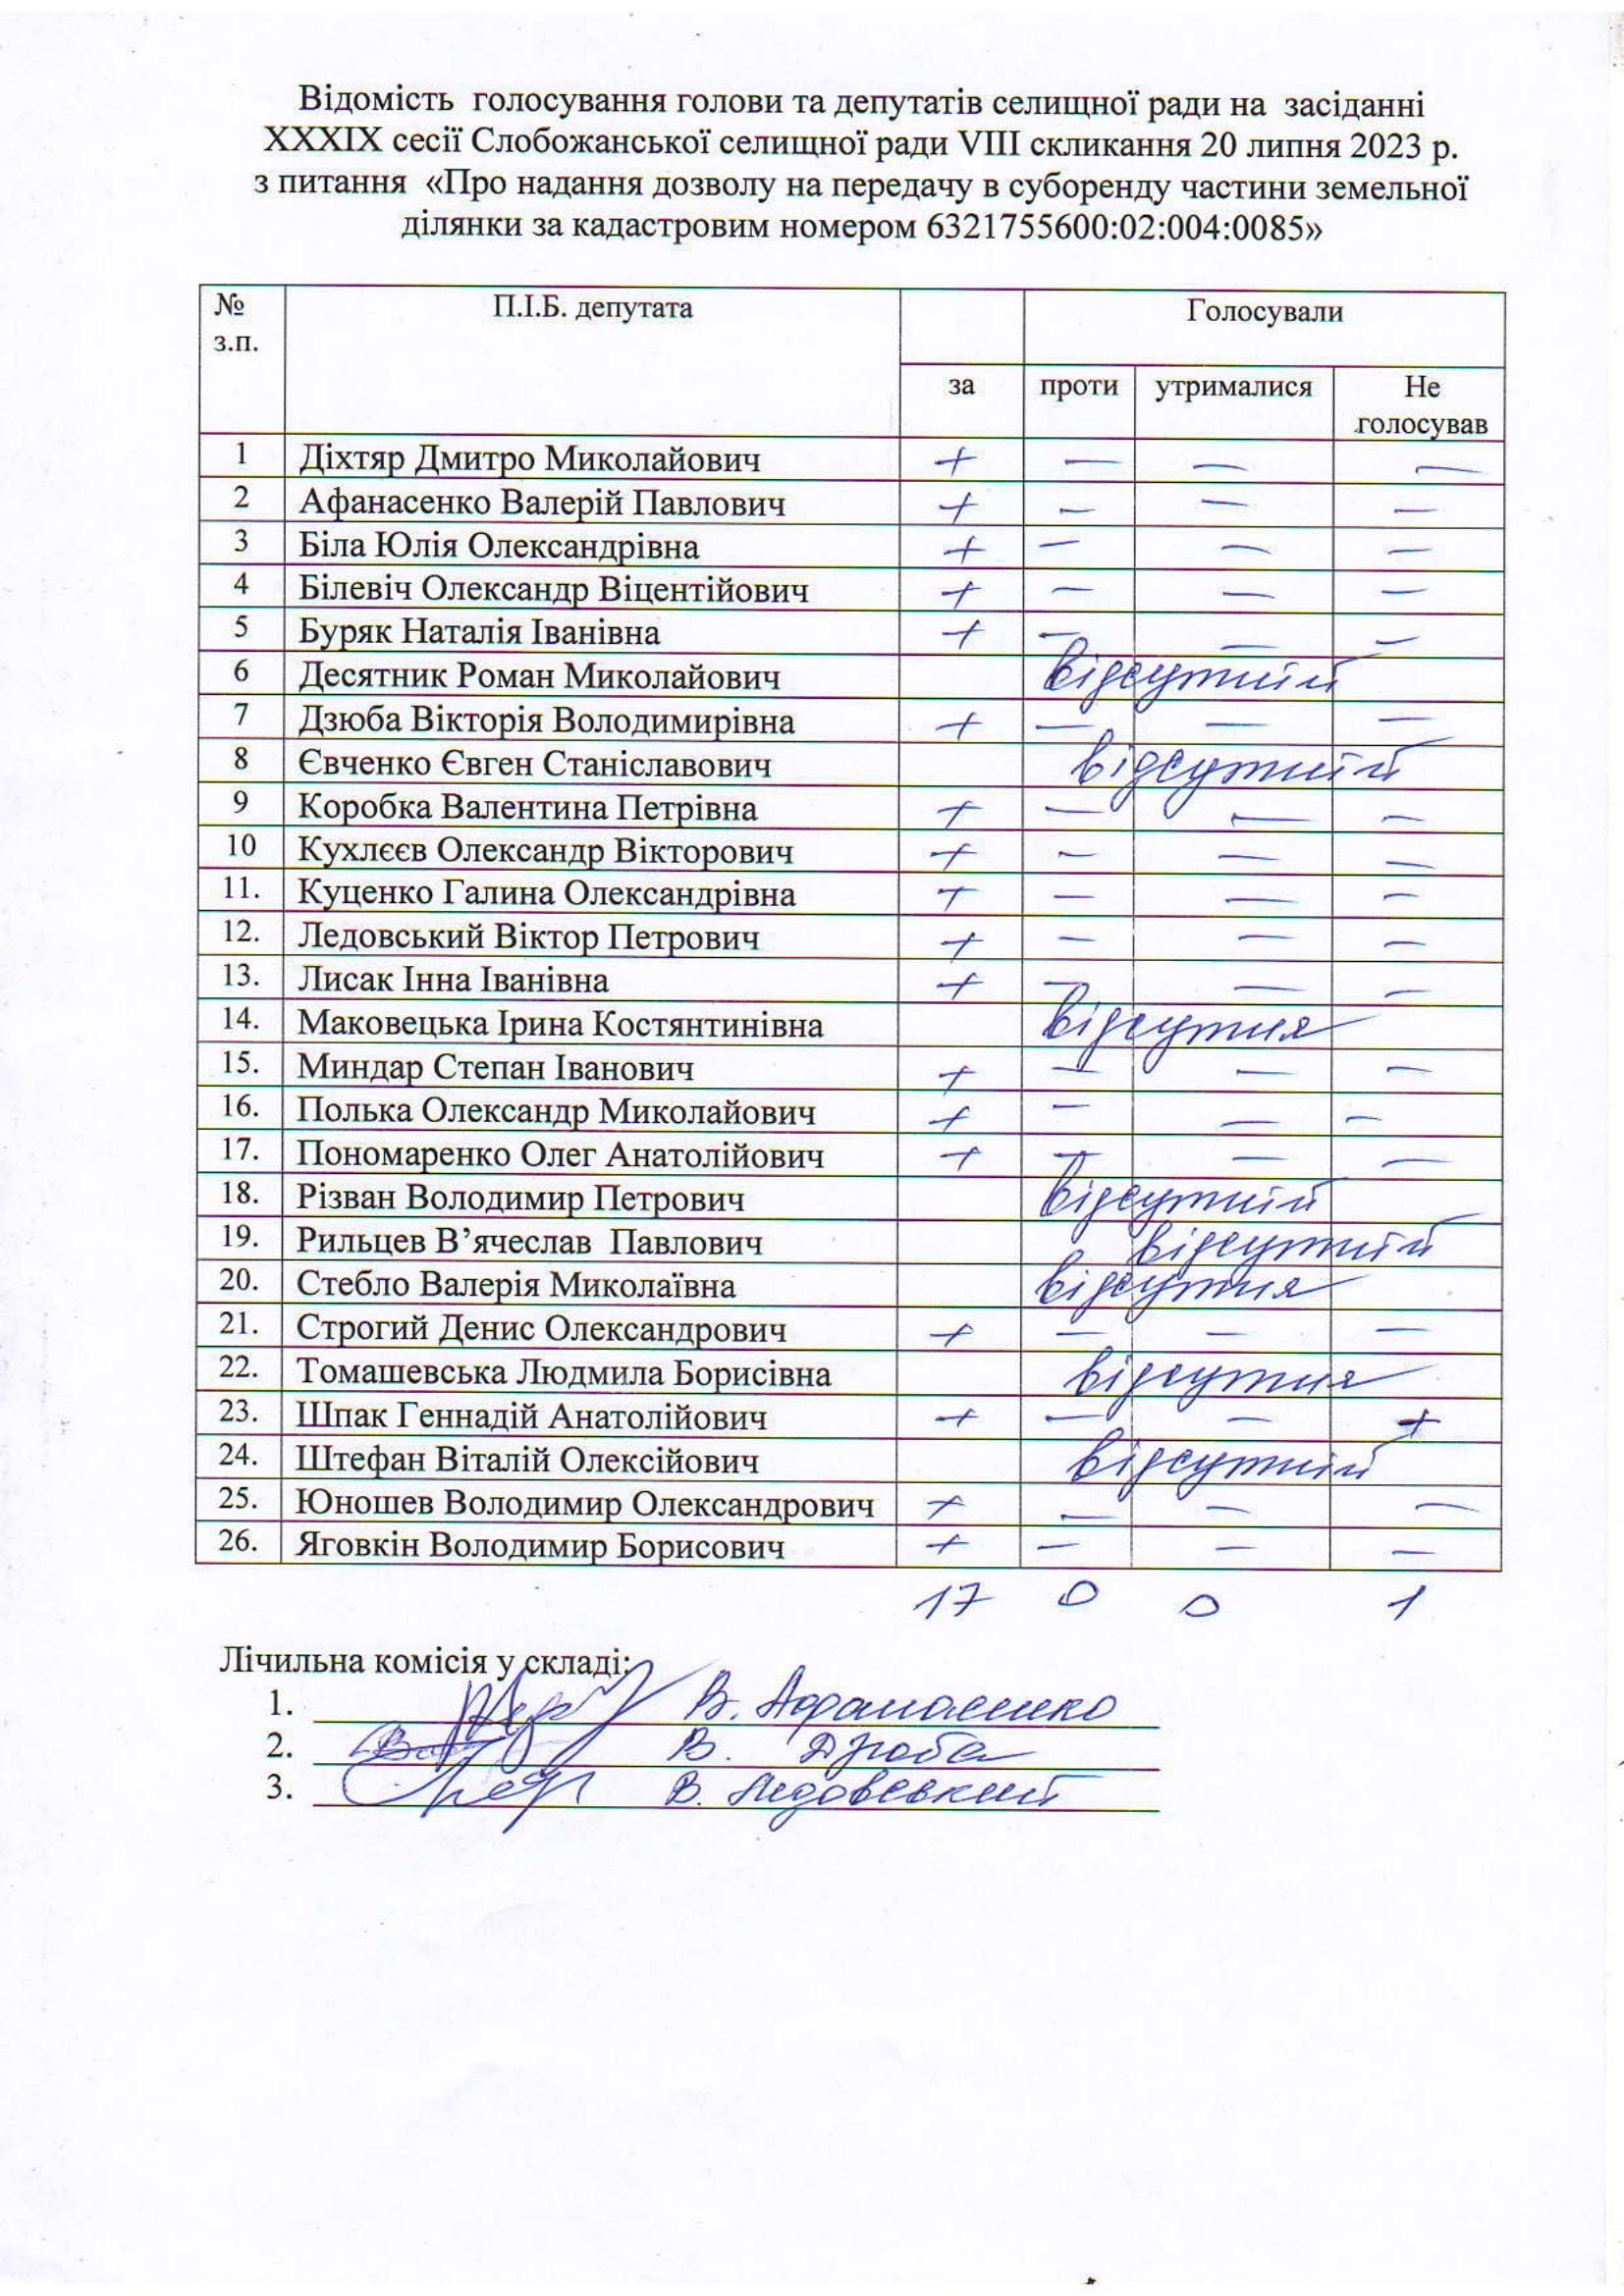 Відомість голосування голови та депутатів селищної ради на засіданні
XXXIX сесії Слобожанської селищної ради VIII скликання 20 липня 2023 р.
з питання «Про надання дозволу на передачу в суборенду частини земельної
ділянки за кадастровим номером 6321755600:02:004:0085»
№ з.п. П.І.Б. депутата Голосували
за проти утрималися Не голосував
1 Діхтяр Дмитро Миколайович + — — —
2 Афанасенко Валерій Павлович + — — —
3 Біла Юлія Олександрівна + — — —
4 Білевіч Олександр Віцентійович + — — —
5 Буряк Наталія Іванівна + — — —
6 Десятник Роман Миколайович відсутній
7 Дзюба Вікторія Володимирівна + — — —
8 Євченко Євген Станіславович відсутній
9 Коробка Валентина Петрівна + — — —
10 Кухлєєв Олександр Вікторович + — — —
11. Куценко Галина Олександрівна + — — —
12. Ледовський Віктор Петрович + — — —
13. Лисак Інна Іванівна + — — —
14. Маковецька Ірина Костянтинівна відсутня
15. Миндар Степан Іванович + — — —
16. Полька Олександр Миколайович + — — —
17. Пономаренко Олег Анатолійович + — — —
18. Різван Володимир Петрович відсутній
19. Рильцев В’ячеслав Павлович відсутній
20. Стебло Валерія Миколаївна відсутня
21. Строгий Денис Олександрович + — — —
22. Томашевська Людмила Борисівна відсутня
23. Шпак Геннадій Анатолійович + — — +
24. Штефан Віталій Олексійович відсутній
25. Юношев Володимир Олександрович + — — —
26. Яговкін Володимир Борисович + — — —
17 0 0 1
Лічильна комісія у складі:
1. В. Афанасенко
2. В. Дзюба
3. В. Ледовський